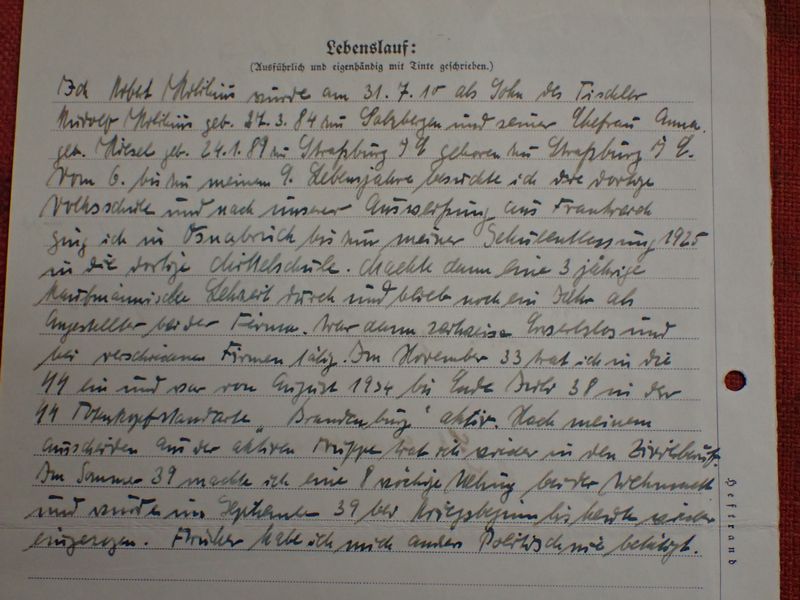 Lebenslauf:
(Ausführlich und eigenhändig mit Tinte geschrieben.)
Ich wurde am 31.7.10 als Sohn des Tischler
Rudolf geb. 27.3.84 zu Salzbergen und seiner Ehefrau Anna
geb. geb. 24.1.89 zu Straßburg geboren zu Straßburg
Vom 6. bis zu meinem 9. Lebensjahre besuchte ich die dortige
Volksschule und nach unserer Ausweisung aus Frankreich
ging ich in Osnabrück bis zur meiner Schulentlassung 1925
in die dortige Mittelschule. Machte dann eine 3 jährige
kaufmännische Lehrzeit durch und blieb noch ein Jahr als
Angestellter bei der Firma. War dann zeitweise und
bei verschiedenen Firmen tätig. Im November 33 trat ich in die
SS ein und war vom August 1934 bis Ende 38 in der
SS Totenkopfstandarte „Brandenburg" aktiv. Nach meinem
Ausscheiden aus der aktiven Truppe trat ich wieder in den Zivilberuf.
Im Sommer 39 machte ich eine 8 wöchige Übung bei der Wehrmacht
und wurde im September 39 bei Kriegsbeginn bis heute wieder
eingezogen. Früher habe ich mich anders Politisch nie betätigt.
Heftrand